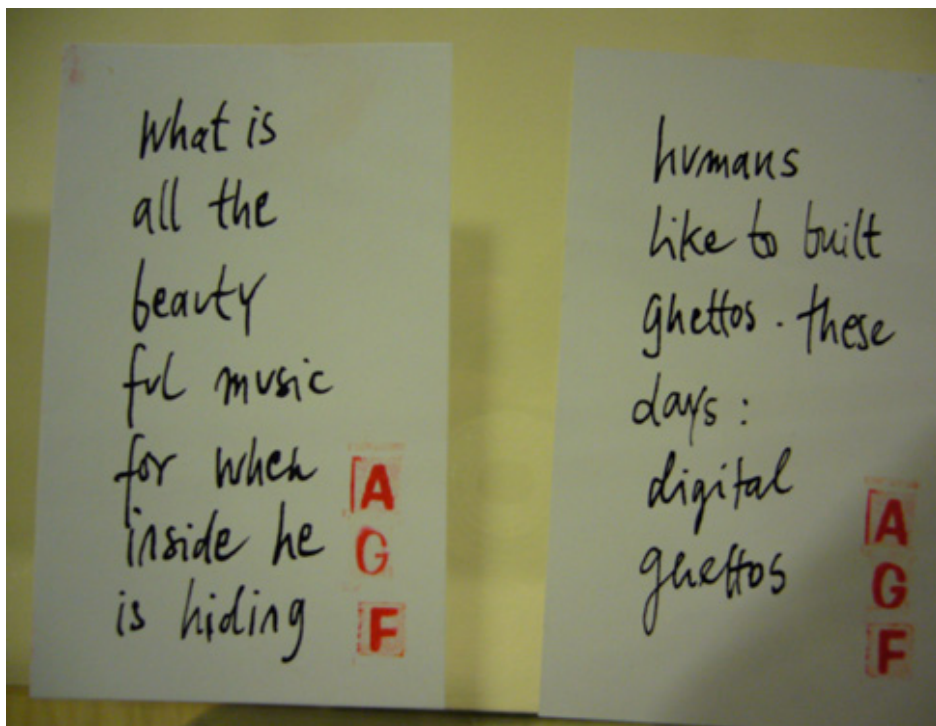 What is
all the
beauty
ful music
for when
inside he
is hiding
A
G
F
humans
like to built
ghettos. these
days:
digital
ghettos
A
G
F